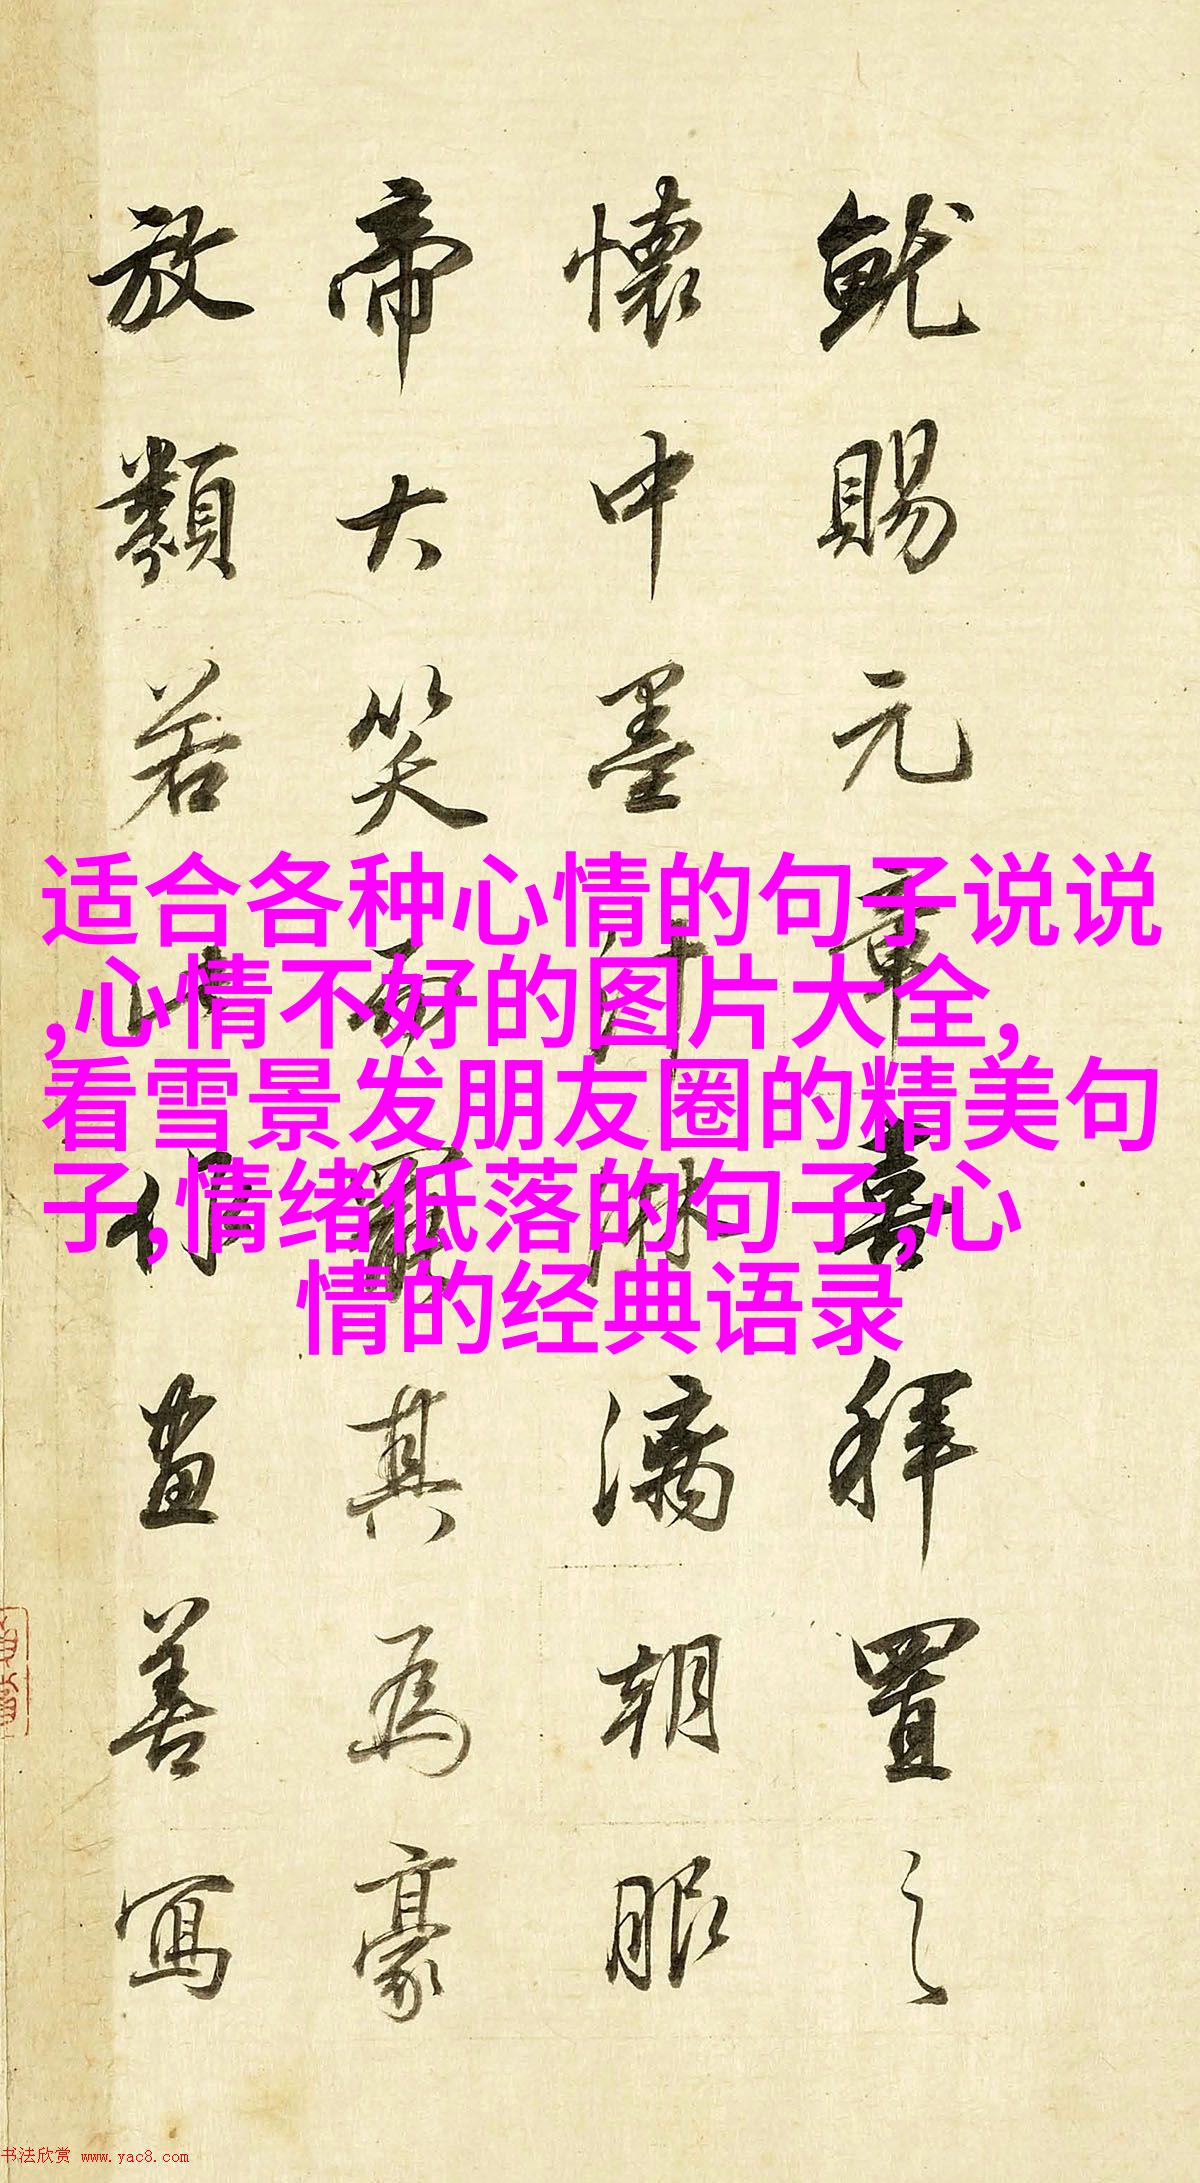 就賜元章喜拜置之
懷中墨汁淋漓朝服
帝大笑而罷其為豪
放類若此畫善寫
适合各种心情的句子说说
,心情不好的图片大全,
看雪景发朋友圈的精美句
子,情绪低落的句子,心
情的经典语录
书法欣赏 www.yac8.com